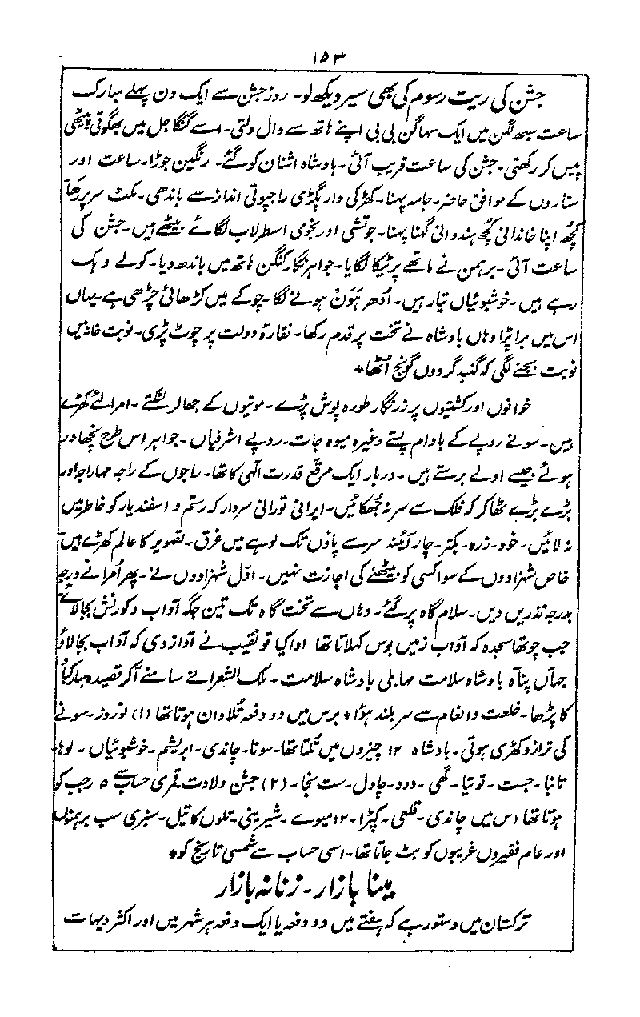 ۱۵۳
جشن کی ریت رسوم کی بھی سیر دیکھ لو۔ روز جشن سے ایک دن پہلے مبارک
ساعت سبھ لگن میں ایک سہاگن بی بی اپنے ہاتھ سے دال دلتی۔ اسے گنگا جل میں بھگوتی پیٹھی
پیس کر رکھتی۔ جشن کی ساعت قریب آئی۔ بادشاہ اشنان کو گئے۔ رنگین جوڑا۔ ساعت اور
ستاروں کے موافق حاضر۔ جامہ پہنا۔ کھڑکی دار پگڑی راجپوتی انداز سے باندھی۔ مکٹ سر پر رکھا
کچھ اپنا خاندانی کچھ ہندوانی گہنا پہنا۔ جوتشی اور نجومی اسطرلاب لگائے بیٹھے ہیں۔ جشن کی
ساعت آئی۔ برہمن نے ماتھے پر ٹیکا لگایا۔ جواہر نگار کنگن ہاتھ میں باندھ دیا۔ کوئلے دہک
رہے ہیں۔ خوشبوئیاں تیار ہیں۔ اُدھر ہَوَن ہونے لگا۔ چوکے میں کڑھائی چڑھی ہے۔ یہاں
اس میں بڑا پڑا وہاں بادشاہ نے تخت پر قدم رکھا۔ نقارۂ دولت پر چوٹ پڑی۔ نوبت خانہ میں
نوبت بجنے لگی کہ گنبد گردوں گونج اُٹھا٭
خوانوں اور کشتیوں پر زرنگار طورہ پوش پڑے۔ موتیوں کے جھالر لٹکتے۔ امرا لئے کھڑے
ہیں۔ سونے روپے کے بادام پستے وغیرہ میوہ جات۔ روپے اشرفیاں۔ جواہر اس طرح نچھاور
ہوتے جیسے اولے برستے ہیں۔ دربار ایک مرقع قدرت الٰہی کا تھا۔ راجوں کے راجہ مہاراجہ اور
بڑے بڑے ٹھاکر کہ فلک سے سر نہ جھکائیں۔ ایرانی تورانی سردار کہ رستم و اسفندیار کو خاطر میں
نہ لائیں۔ خود۔ زرہ۔ بکتر۔ چار آئینہ سر سے پاؤں تک لوہے میں غرق۔ تصویر کا عالم کھڑے ہیں
خاص شہزادوں کے سوا کسی کو بیٹھنے کی اجازت نہیں۔ اوّل شہزادوں نے۔ پھر اُمرا نے درجہ
بدرجہ نذریں دیں۔ سلام گاہ پر گئے۔ وہاں سے تخت گاہ تک تین جگہ آداب و کورنش بجا لائے
جب چوتھا سجدہ کہ آداب زمیں بوس کہلاتا تھا ادا کیا تو نقیب نے آواز دی کہ آداب بجا لاؤ
جہاں پناہ بادشاہ سلامت مہابلی بادشاہ سلامت۔ ملک الشعرا نے سامنے آکر قصیدہ مبارکباد
کا پڑھا۔ خلعت و انعام سے سربلند ہوا٭ برس میں دو دفعہ تُلادان ہوتا تھا (۱) نوروز۔ سونے
کی ترازو کھڑی ہوتی۔ بادشاہ ۱۲ چیزوں میں تُلتا تھا۔ سونا۔ چاندی۔ ابریشم۔ خوشبوئیاں۔ لوہا۔
تانبا۔ جست۔ توتیا۔ گھی۔ دودھ۔ چاول۔ ست نجا۔ (۲) جشن ولادت۔ قمری حساب سے ۵ رجب کو
ہوتا تھا اس میں چاندی۔ قلعی۔ کپڑا۔ ۱۲ میوے۔ شیرینی۔ تلوں کا تیل۔ سبزی سب برہمنوں
اور عام فقیروں غریبوں کو بٹ جاتا تھا۔ اسی حساب سے شمسی تاریخ کو٭
مینا بازار۔ زنانہ بازار
ترکستان میں دستور ہے کہ ہفتے میں دو دفعہ یا ایک دفعہ ہر شہر میں اور اکثر دیہات